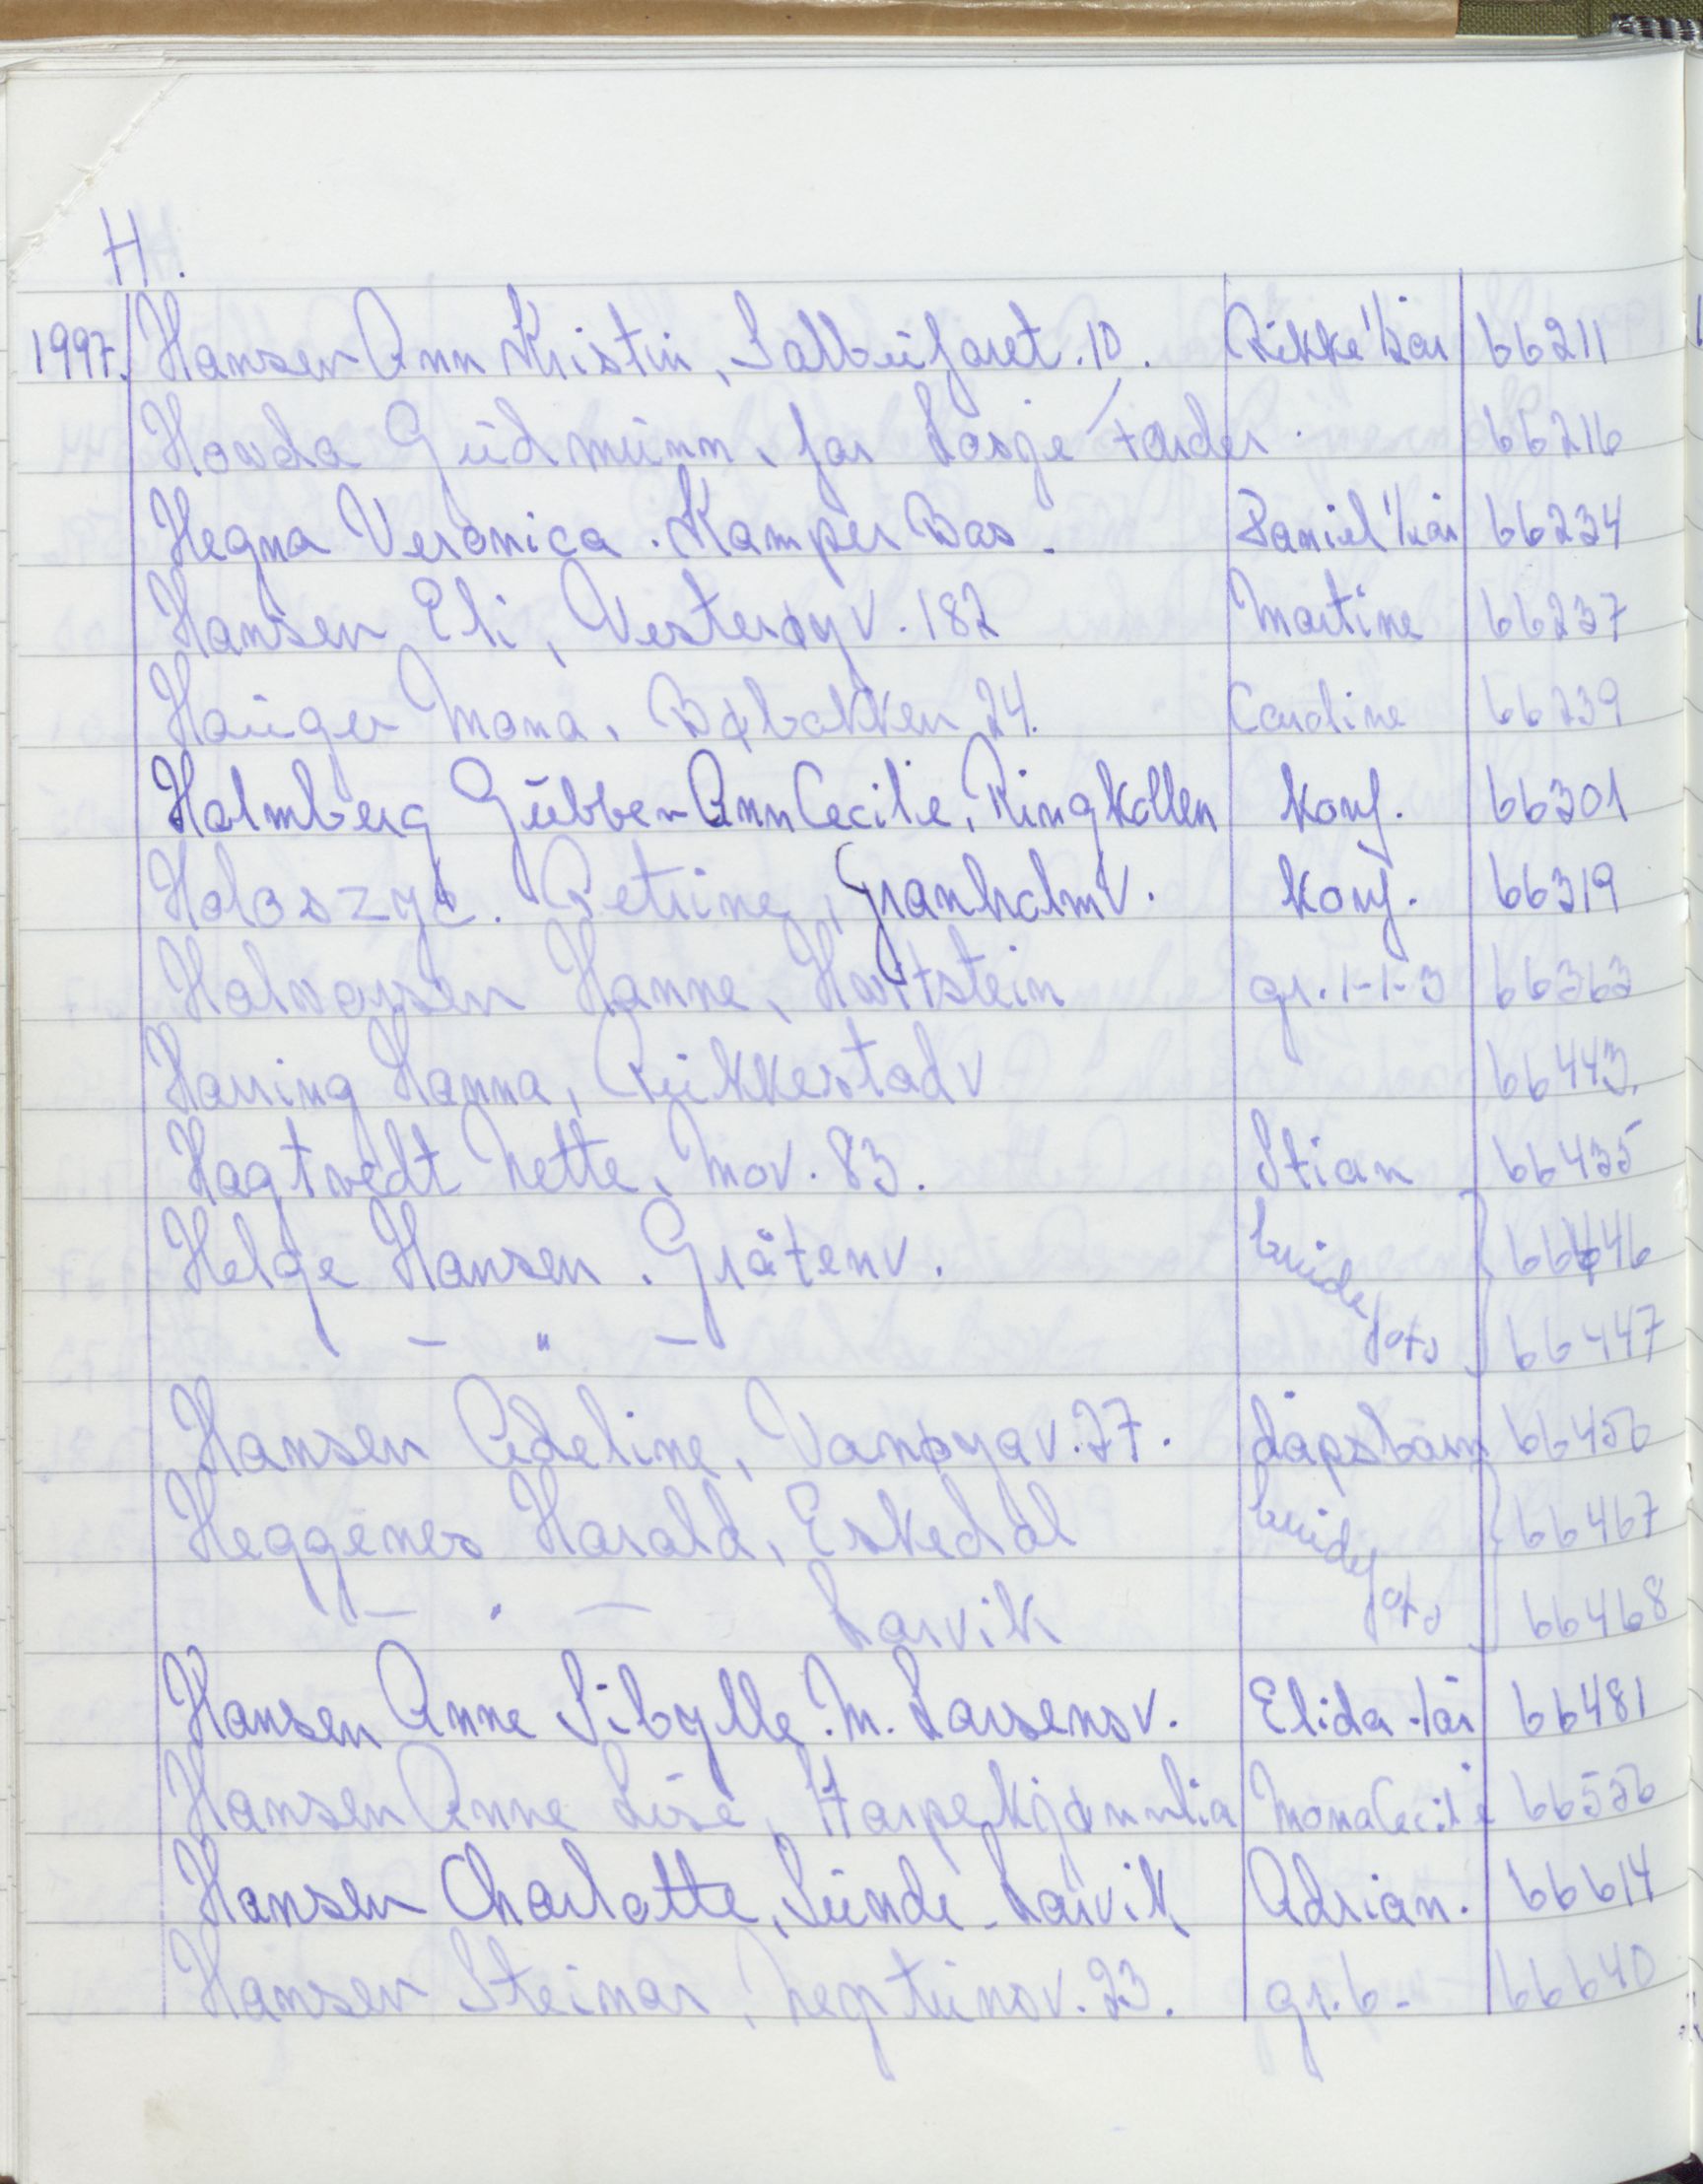 H.
1997. Hansen Ann Kristin, Salbufaret. 10. Rikke 1/2 år 66211
Hovda Gudmunn, for Losje Færder. 66216
Hegna Veronica. Kamper Bas. Daniel 1/2 år 66234
Hansen Eli, Vesterøyv. 182 Martine 66237
Hauger Mona, Bøbakken 24. Caroline 66239
Holmberg Gubber Ann Cecilie, Ringkollen konf. 66301
Holoszyc. Petrine, Granholmv. konf. 66319
Halvorsen Hanne, Hvitstein gr. 1-1-3 66363
Harring Hanna, Rukkestadv 66443.
Hagtvedt Nette, Mov. 83. Stian 66435
Helge Hansen. Gråtenv. brude 66446
— " — foto 66447
Hansen Adeline, Vanøyav. 27. dåpsbarn 66450
Heggenes Harald, Eskedal brude 66467
— " — Larvik foto 66468
Hansen Anne Sibylle. M. Larsensv. Elida 1 år 66481
Hansen Anne Lise, Harpekjønnlia Mona Cecilie 66526
Hansen Charlotte, Sunde Larvik Adrian. 66614
Hansen Steinar, Neptunov. 23. gr. 6. 66640